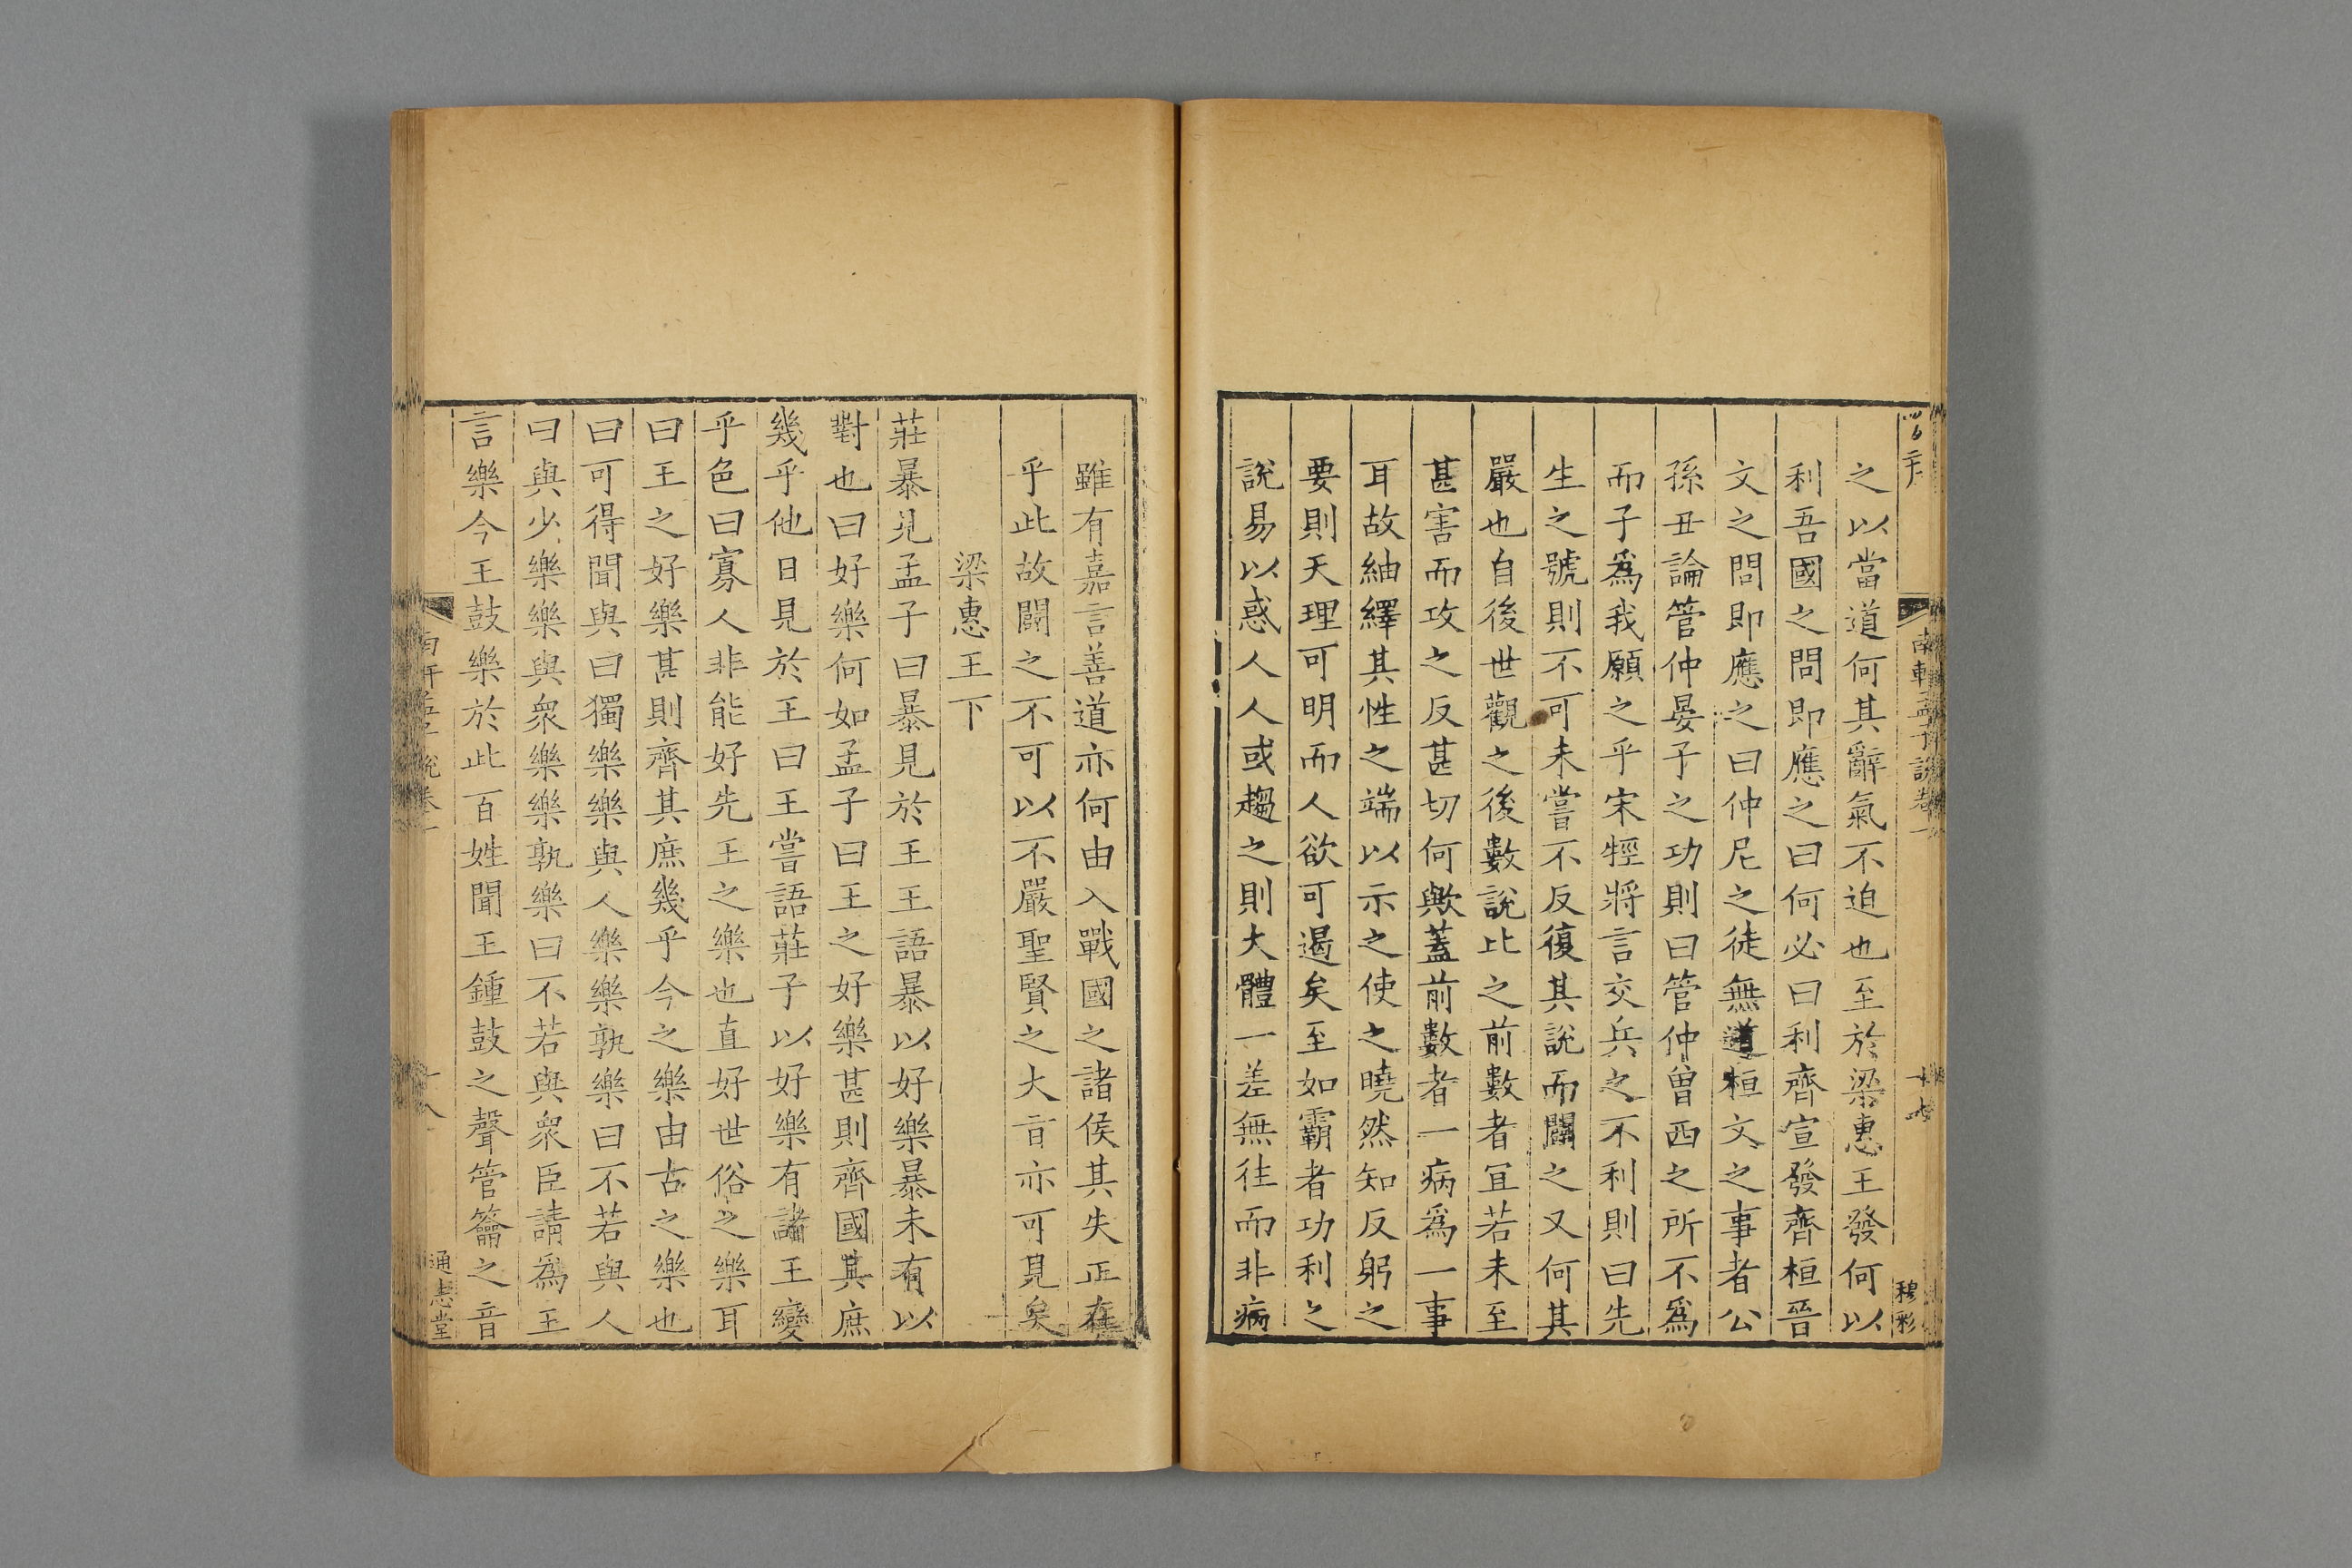 南軒孟子說卷一
十七
穆彩
之以當道何其辭氣不迫也至於梁惠王發何以
利吾國之問即應之曰何必曰利齊宣發齊桓晉
文之問即應之曰仲尼之徒無道桓文之事者公
孫丑論管仲晏子之功則曰管仲曾西之所不爲
而子爲我願之乎宋牼將言交兵之不利則曰先
生之號則不可未嘗不反復其說而闢之又何其
嚴也自後世觀之後數說比之前數者冝若未至
甚害而攻之反甚切何歟蓋前數者一病爲一事
耳故紬繹其性之端以示之使之曉然知反躬之
要則天理可明而人欲可遏矣至如霸者功利之
說易以惑人人或趨之則大體一差無往而非病
雖有嘉言善道亦何由入戰國之諸侯其失正在
乎此故闢之不可以不嚴聖賢之大旨亦可見矣
梁惠王下
莊暴見孟子曰暴見於王王語暴以好樂暴未有以
對也曰好樂何如孟子曰王之好樂甚則齊國其庶
幾乎他日見於王曰王嘗語莊子以好樂有諸王變
乎色曰寡人非能好先王之樂也直好世俗之樂耳
曰王之好樂甚則齊其庶幾乎今之樂由古之樂也
曰可得聞與曰獨樂樂與人樂樂孰樂曰不若與人
曰與少樂樂與衆樂樂孰樂曰不若與衆臣請爲王
言樂今王鼓樂於此百姓聞王鍾鼓之聲管籥之音
南軒孟子說卷一
十八
通志堂